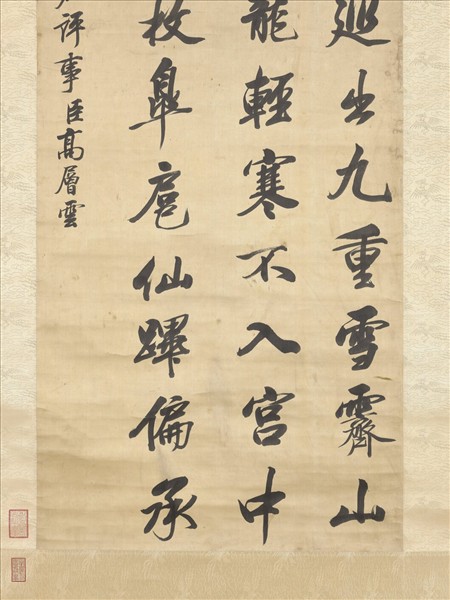 巡出九重雪霽山
龍輕寒不入宮中
枚皐扈仙蹕偏承
評事臣高層雲